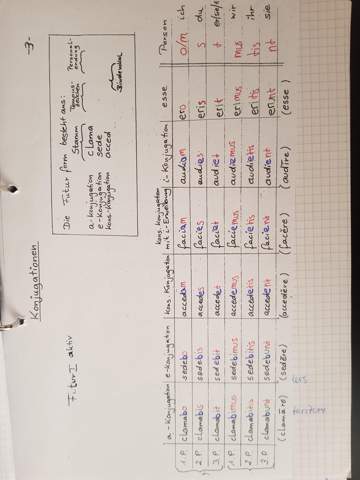 - 3 -
Konjugationen
Futur I aktiv
Die Futur form besteht aus:
Stamm Tempus- zeichen Personal- endung
a-Konjugation clama
e-Konjugation sede
kons. Konjugation acced
Bindevokal
a-Konjugation e-Konjugation kons. Konjugation kons. Konjugation mit i-Erweiterung i-Konjugation esse Person
1. P clamabo sedebo accedam faciam audiam ero o/m ich
2. P clamabis sedebis accedes facies audies eris s du
3. P clamabit sedebit accedet faciet audiet erit t er/sie/es
1. P clamabimus sedebimus accedemus faciemus audiemus erimus mus wir
2. P clamabitis sedebitis accedetis facietis audietis eritis tis ihr
3. P clamabunt sedebunt accedent facient audient erunt nt sie
(clamāre) (sedēre) (accedĕre) (facĕre) (audīre) (esse)